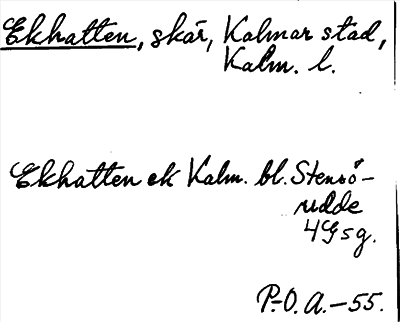 Ekhatten, skär, Kalmar stad,
Kalm. l.
Ekhatten ek Kalm. bl. Stensö-
udde
4G5g.
P.-O. A.-55.